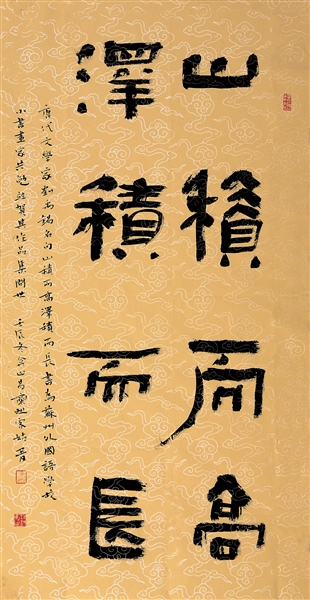 山積而高
澤積而長
唐代文學家劉禹錫名句山積而高澤積而長書為蘇州外國語學校
小書畫家共勉并賀其作品集問世 壬辰冬